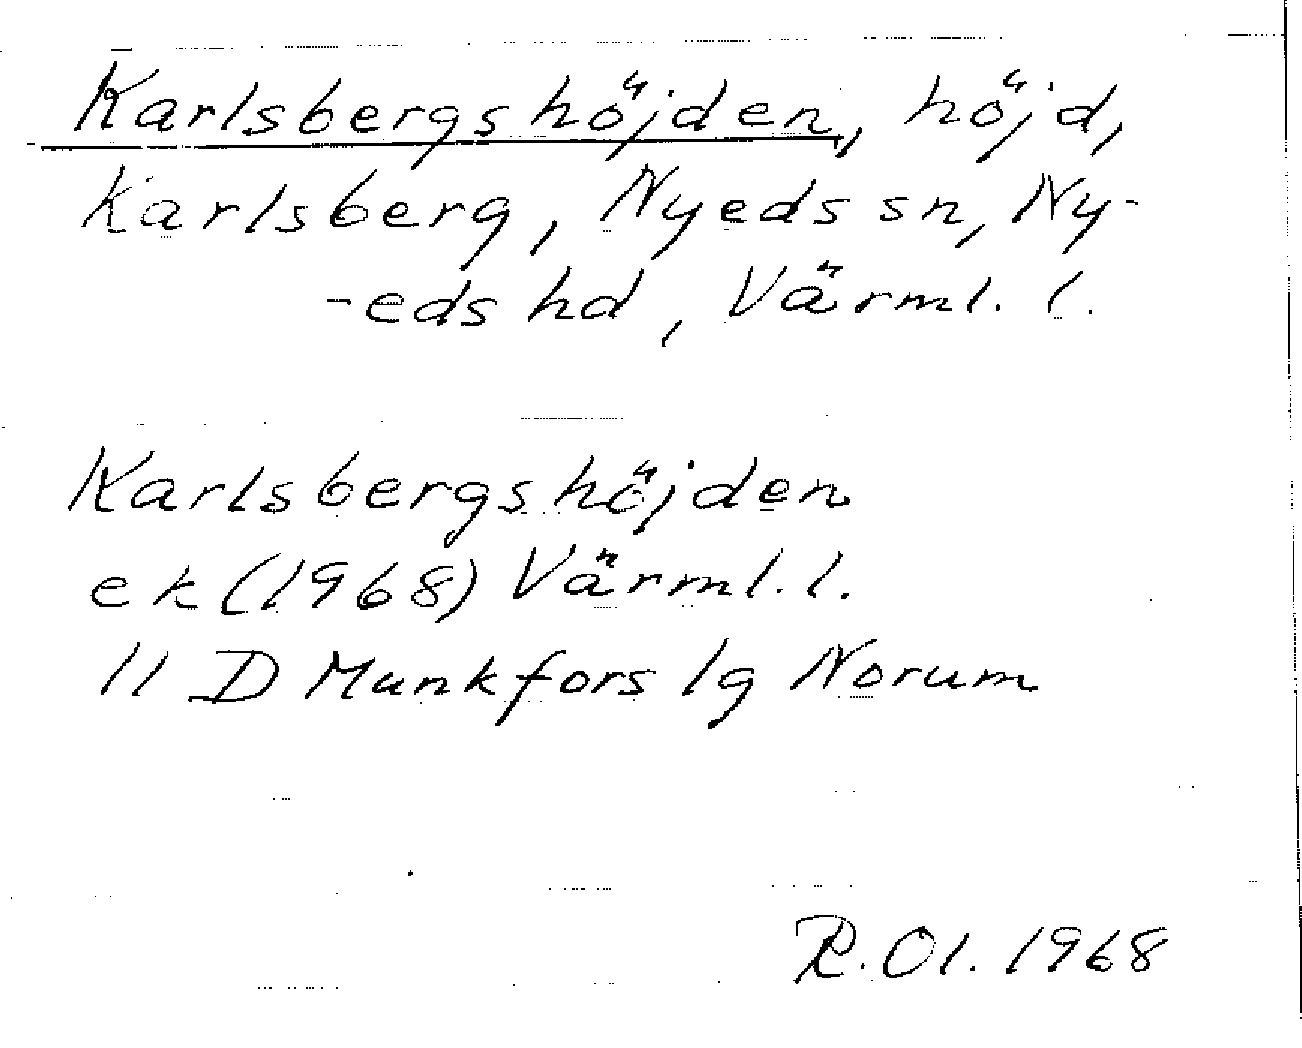 Karlsbergshöjden, höjd,
Karlsberg, Nyeds sn, Ny-
-eds hd, Värml. l.
Karlsbergshöjden
ek (1968) Värml. l.
11 D Munkfors 1g Norum
R. Ol. 1968